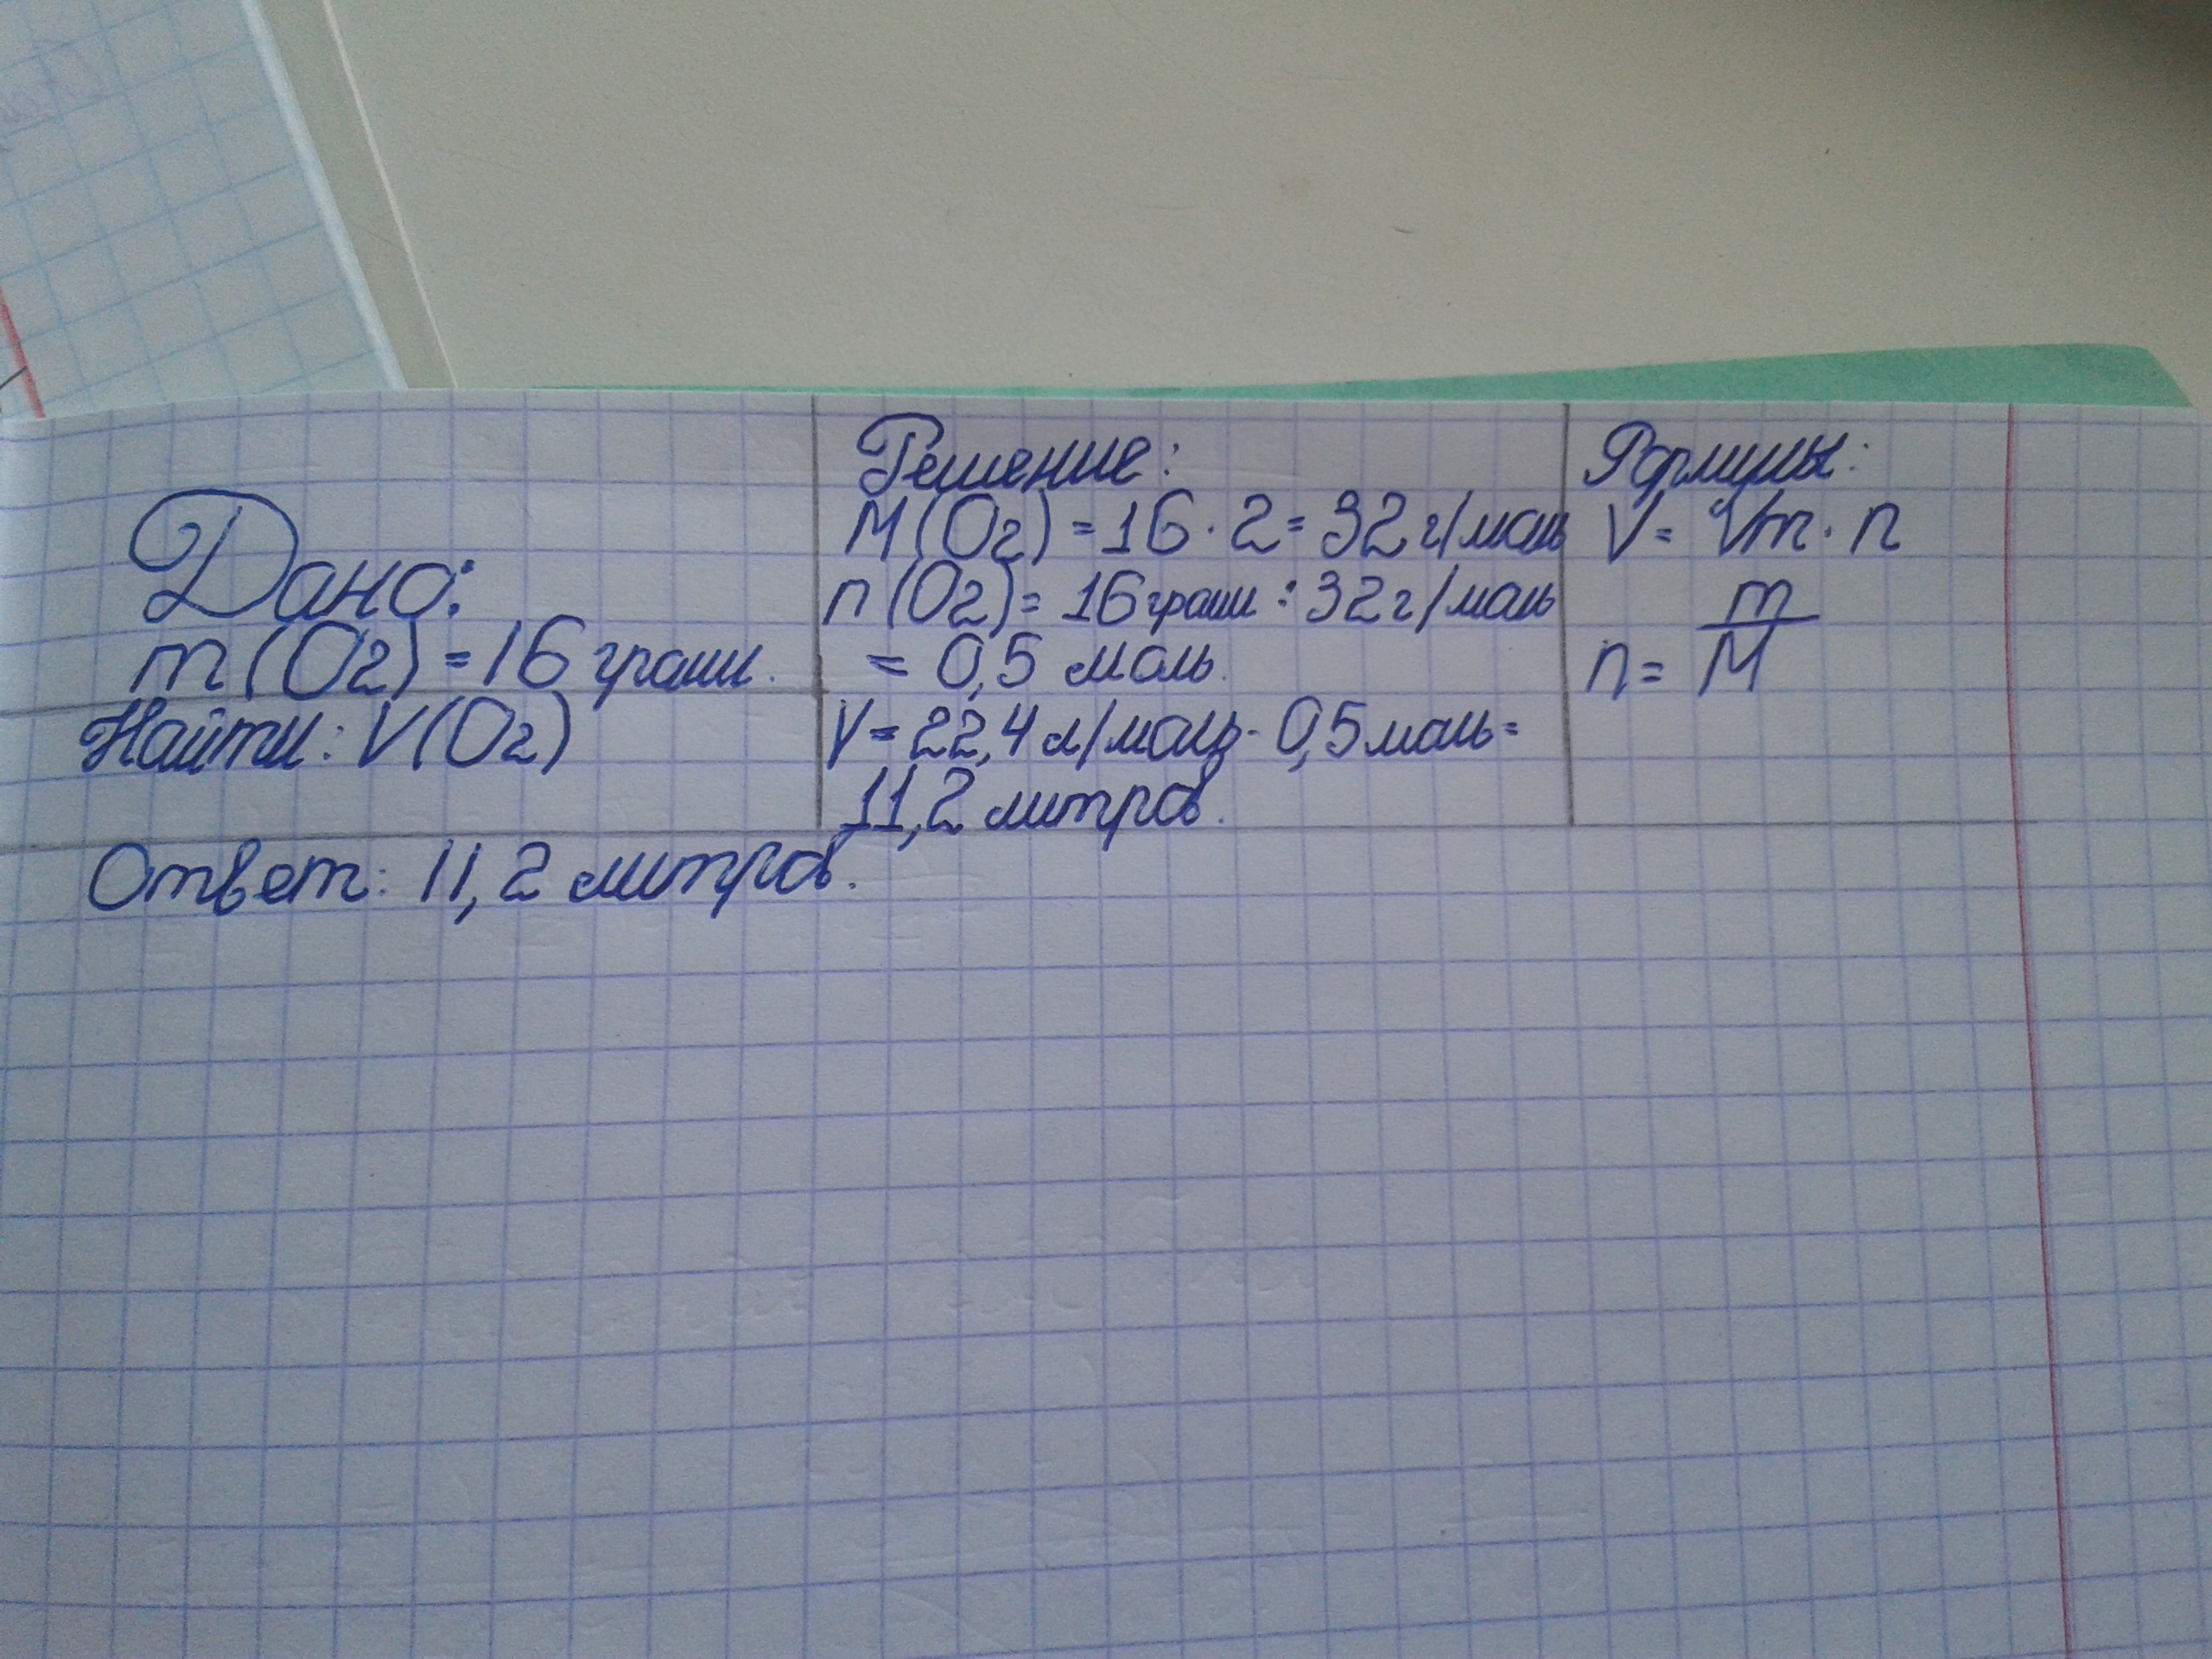 Дано:
m(O2) = 16 грамм.
Найти: V(O2)
Решение:
M(O2) = 16 · 2 = 32 г/моль
n(O2) = 16 грамм : 32 г/моль
= 0,5 моль.
V = 22,4 л/моль · 0,5 моль =
11,2 литров.
Формулы:
V = Vm · n
n = m/M
Ответ: 11,2 литров.